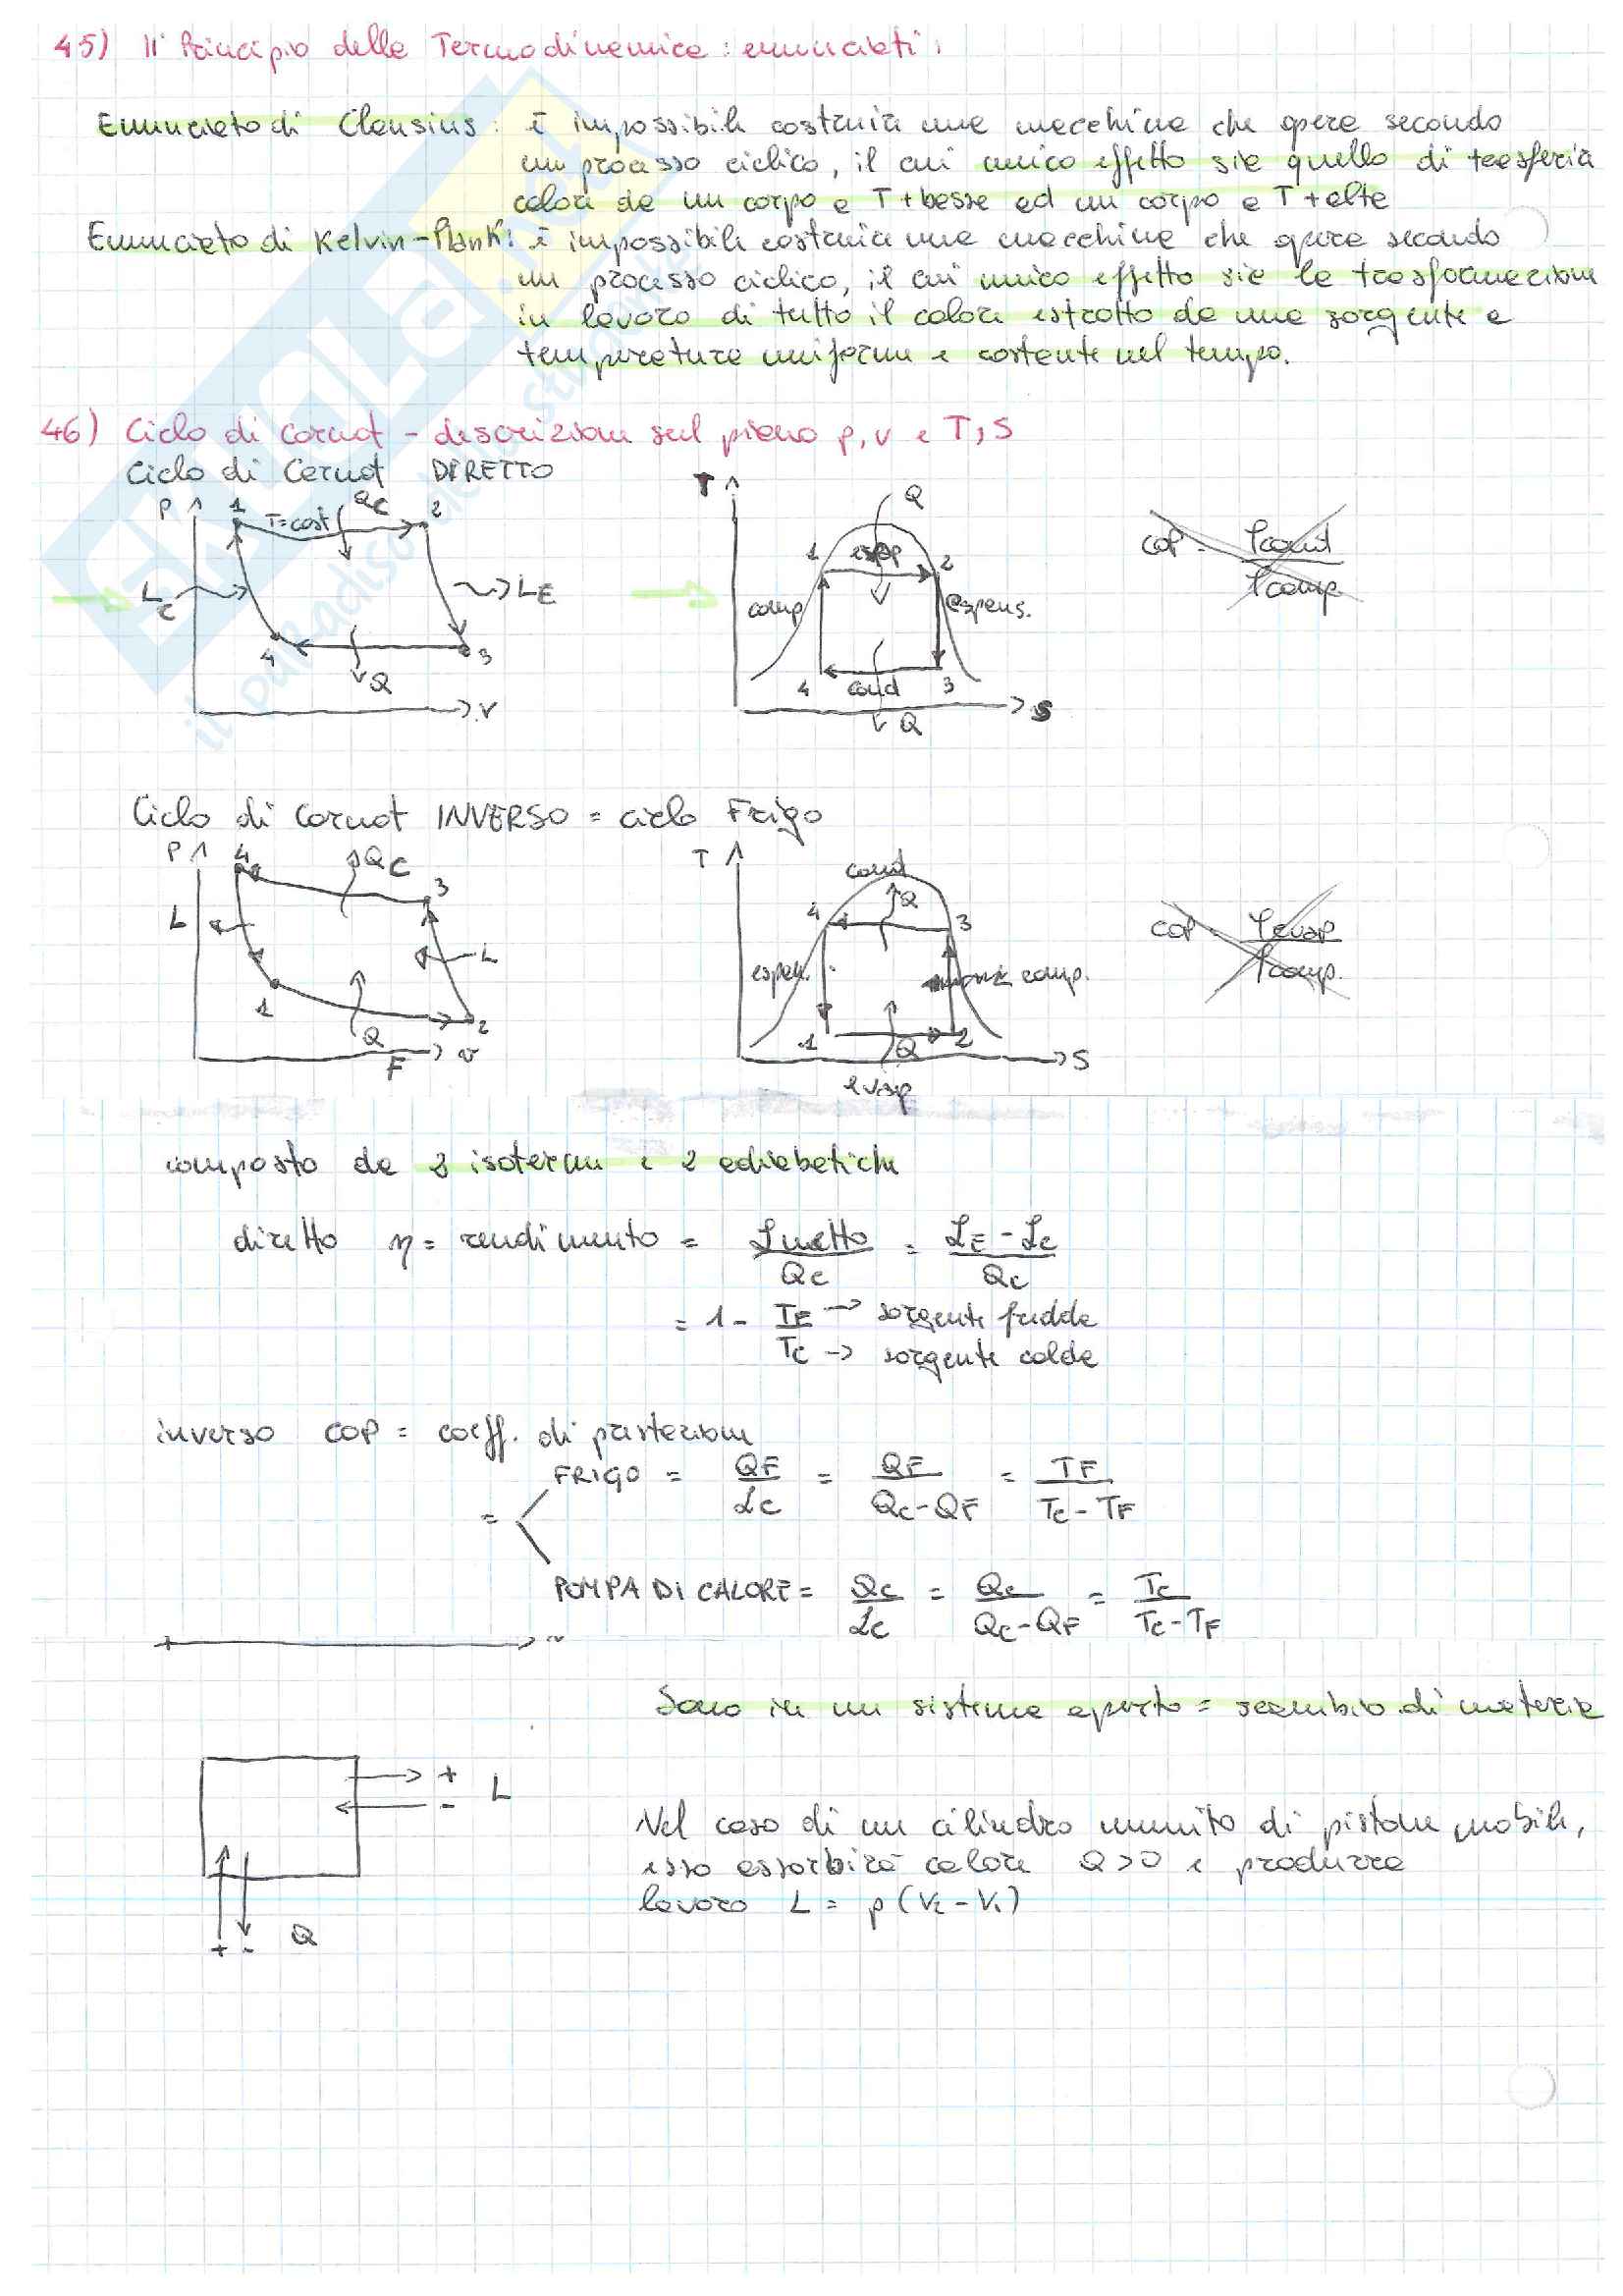 45) II° Principio della Termodinamica: enunciati:
Enunciato di Clausius: è impossibile costruire una macchina che opera secondo
un processo ciclico, il cui unico effetto sia quello di trasferire
calore da un corpo a T + bassa ad un corpo a T + alta
Enunciato di Kelvin-Plank: è impossibile costruire una macchina che opera secondo
un processo ciclico, il cui unico effetto sia la trasformazione
in lavoro di tutto il calore estratto da una sorgente a
temperatura uniforme e costante nel tempo.
46) Ciclo di Carnot - descrizione sul piano p, v e T, S
Ciclo di Carnot DIRETTO
P 1 T=cost Qc 2
Lc LE
4 3
Q
v
T Q
1 evap 2
comp espans.
4 cond 3
Q S
COP = qcond / qcomp.
Ciclo di Carnot INVERSO = ciclo Frigo
P 4 Qc 3
L L
1 2
QF v
T cond
4 Q 3
espan. comp.
1 Q 2
evap S
COP = qevap / qcomp.
composto da 2 isoterme e 2 adiabatiche
diretto η = rendimento = Lnetto / Qc = LE - Lc / Qc
= 1 - TF → sorgente fredda
Tc → sorgente calda
inverso COP = coeff. di prestazione
= FRIGO = QF / Lc = QF / Qc - QF = TF / Tc - TF
POMPA DI CALORE = Qc / Lc = Qc / Qc - QF = Tc / Tc - TF
Sono in un sistema aperto = scambio di materia
+ L
-
+ - Q
Nel caso di un cilindro munito di pistone mobile,
esso assorbirà calore Q>0 e produrrà
lavoro L = p (V2 - V1)